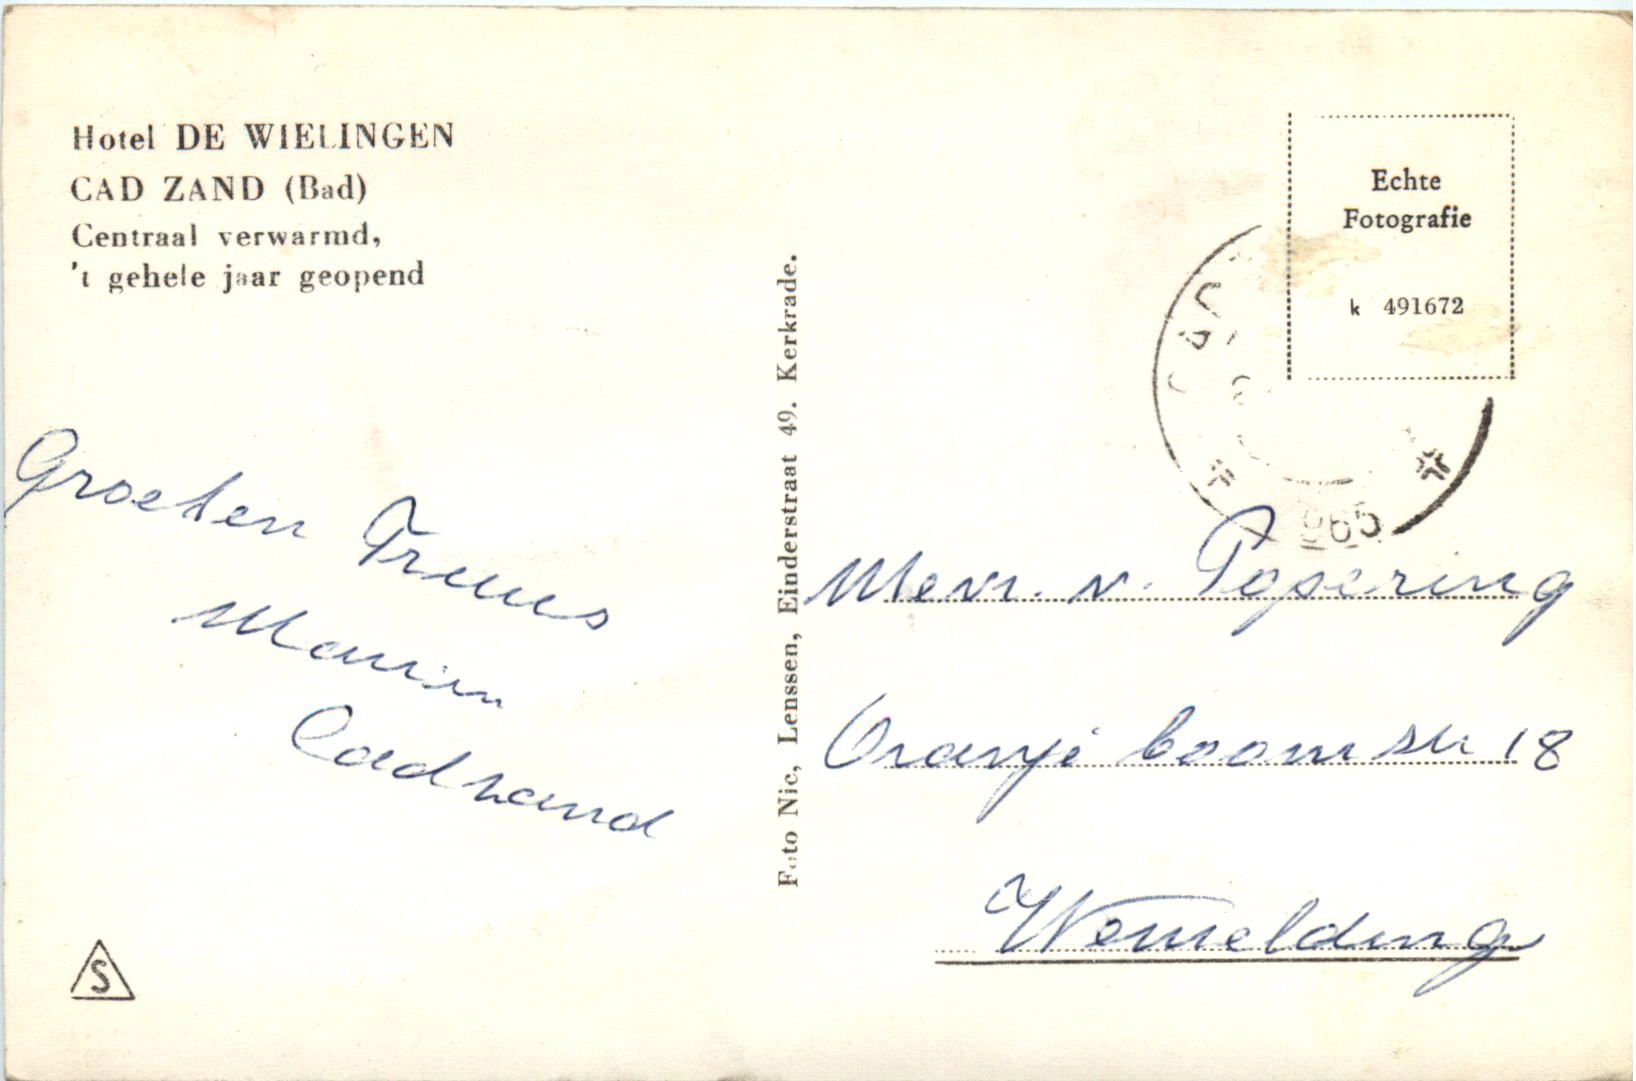 Hotel DE WIELINGEN
CAD ZAND (Bad)
Centraal verwarmd,
't gehele jaar geopend
Groeten Truus
Cadzand
S
Foto Nic, Lenssen, Einderstraat 49. Kerkrade.
Echte
Fotografie
k 491672
965
Mevr. v.
Oranje boomstr 18
Wemelding